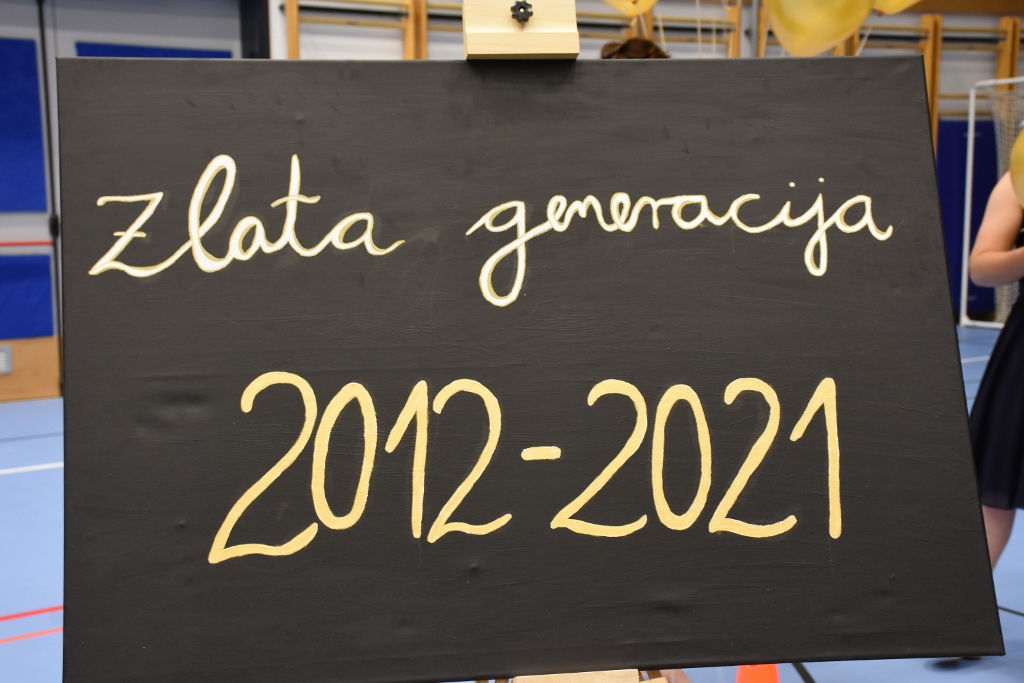 Zlata generacija
2012-2021